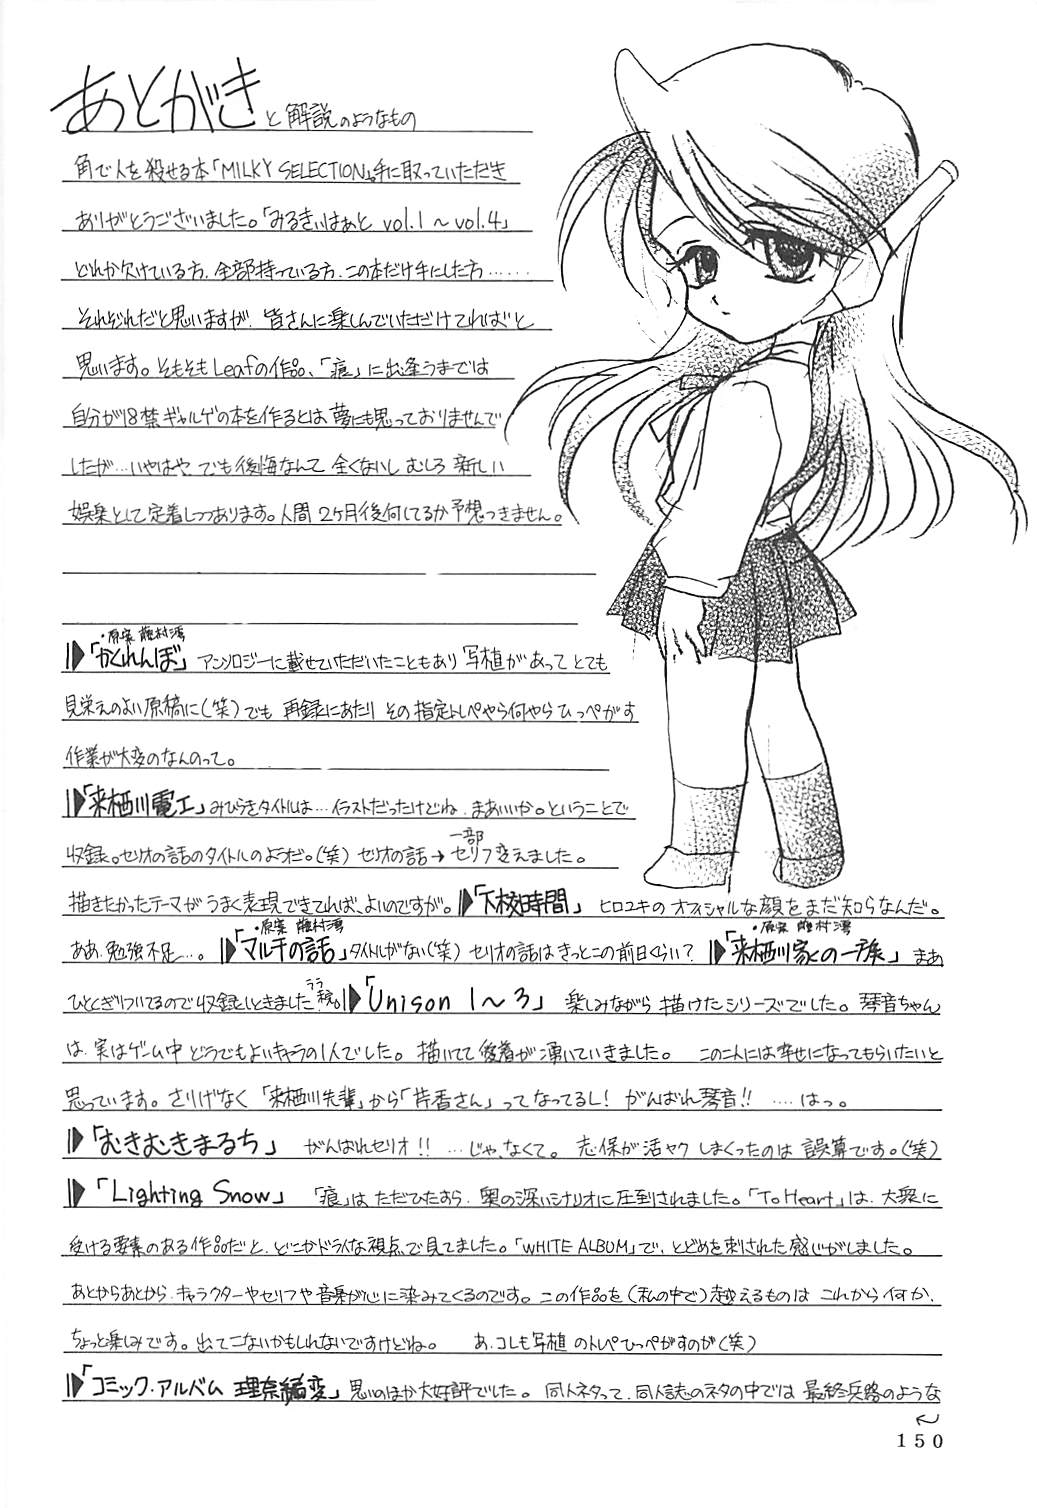 あとがき と 解説のようなもの
角で人を殺せる本「MILKY SELECTION」手に取っていただき
ありがとうございました。「みるきぃはぁと vol.1〜vol.4」
どれか欠けている方、全部持っている方、この本だけ手にした方……
それぞれだと思いますが、皆さんに楽しんでいただけてればと
思います。そもそもLeafの作品、「痕」に出逢うまでは
自分が18禁ギャルゲの本を作るとは夢にも思っておりませんで
したが…いやはや、でも後悔なんて全くないし むしろ 新しい
娯楽として定着しつつあります。人間 2ヶ月後何してるか予想つきません。
・原案 藤村湾
「かくれんぼ」 アンソロジーに載せていただいたこともあり 写植があって とても
見栄えのよい原稿に(笑)でも 再録にあたり その指定トレペやら何やら ひっぺがす
作業が大変のなんのって。
「来栖川電工」みひらきタイトルは…イラストだったけどね、まあいいか。ということで
収録。セリオの話のタイトルのようだ。(笑) セリオの話→一部セリフ変えました。
描きたかったテーマが うまく表現できてれば、よいのですが。「下校時間」 ヒロユキの オフィシャルな顔をまだ知らなんだ。
ああ、勉強不足…。「マルチの話」・原案 藤村湾 タイトルがない(笑) セリオの話はきっとこの前日くらい?「来栖川家の一族」・原案 藤村湾 まあ
ひとくぎりついてるので収録といきました。「Unison 1〜3」 楽しみながら 描けたシリーズでした。琴音ちゃん
は、実はゲーム中 どうでもよいキャラの1人でした。描いてて愛着が湧いていきました。 この二人には幸せになってもらいたいと
思っています。さりげなく「来栖川先輩」から「芹香さん」ってなってるし! がんばれ琴音!! ……はっ。
「むきむきまるち」 がんばれセリオ!! …じゃ、なくて。 志保が活ヤク しまくったのは 誤算です。(笑)
「Lighting Snow」 「痕」は、ただひたすら、奥の深いシナリオに圧倒されました。「To Heart」は、大衆に
受ける要素のある作品だと、どこかドライな視点で見てました。「WHITE ALBUM」で、とどめを刺された感じがしました。
あとからあとから、キャラクターやセリフや音楽が心に染みてくるのです。この作品を(私の中で)越えるものは これから何か、
ちょっと楽しみです。出てこないかもしれないですけどね。 あ、コレも写植 のトレペひっぺがすのが(笑)
「コミック・アルバム 理奈編変」思いのほか大好評でした。同人ネタって、同人誌のネタの中では 最終兵器のような
150